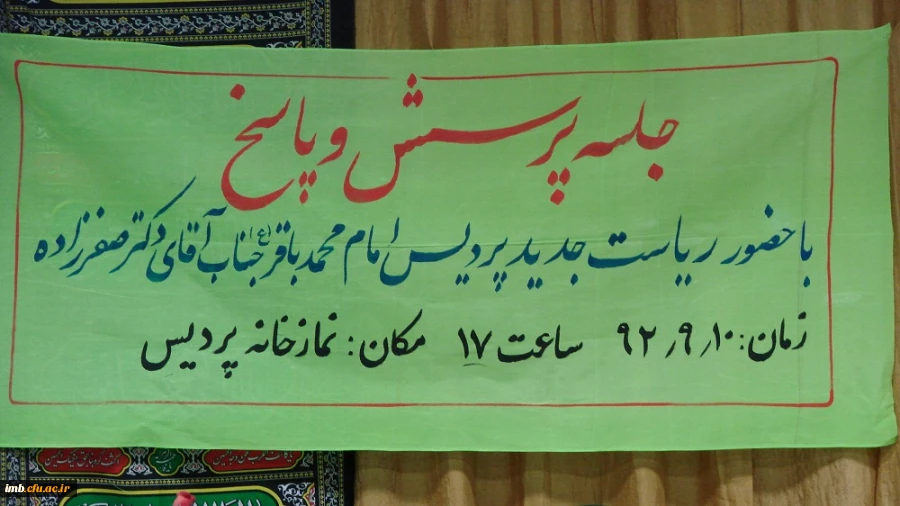 جلسه پرسش و پاسخ
با حضور ریاست جدید پردیس امام محمد باقر(ع) جناب آقای دکتر صفرزاده
زمان: ۹۲٫۹٫۱۰ ساعت ۱۷ مکان: نمازخانه پردیس
imb.cfu.ac.ir